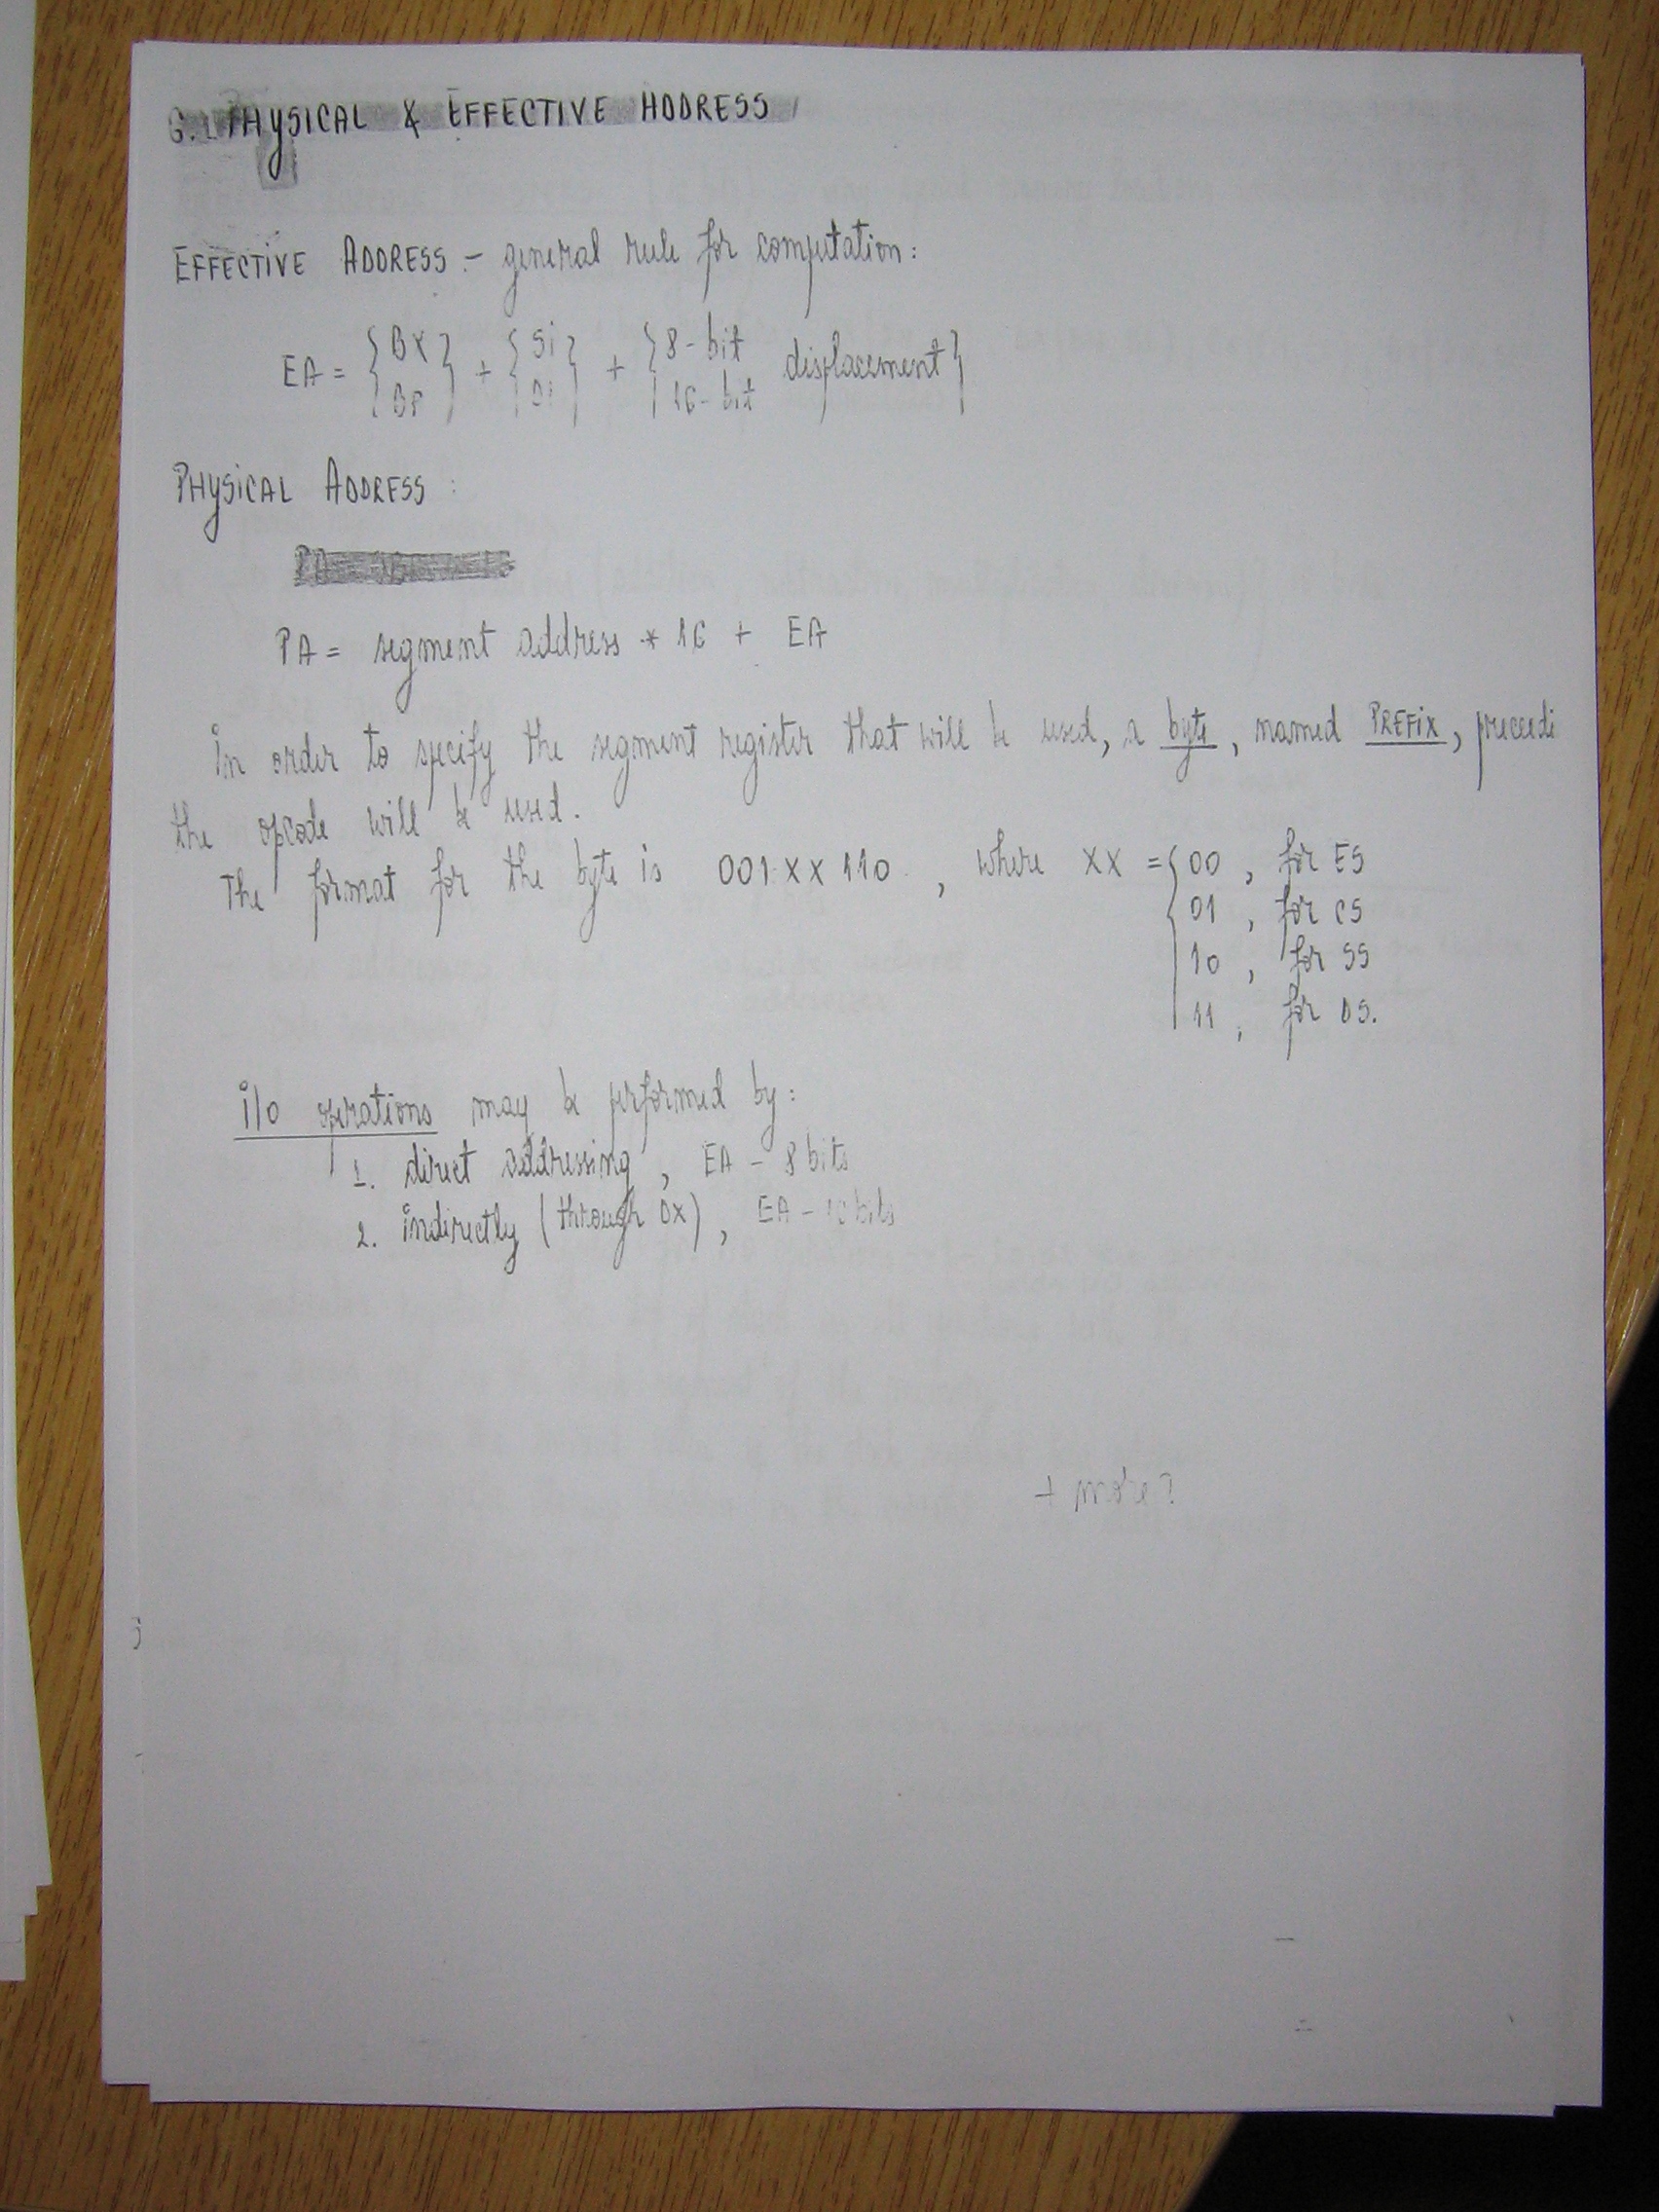 6.1 PHYSICAL & EFFECTIVE ADDRESS
EFFECTIVE ADDRESS - general rule for computation:
EA = { BX } + { Si } + { 8-bit displacement }
{ BP } { Di } { 16-bit }
PHYSICAL ADDRESS :
PA = segment address * 16 + EA
In order to specify the segment register that will be used, a byte, named PREFIX, preceedi
the opcode will be used.
The format for the byte is 001 XX 110 , where XX = { 00 , for ES
01 , for CS
10 , for SS
11 , for DS.
i/o operations may be performed by:
1. direct addressing, EA - 8 bits
2. indirectly (through DX), EA - 16 bits
+ more?